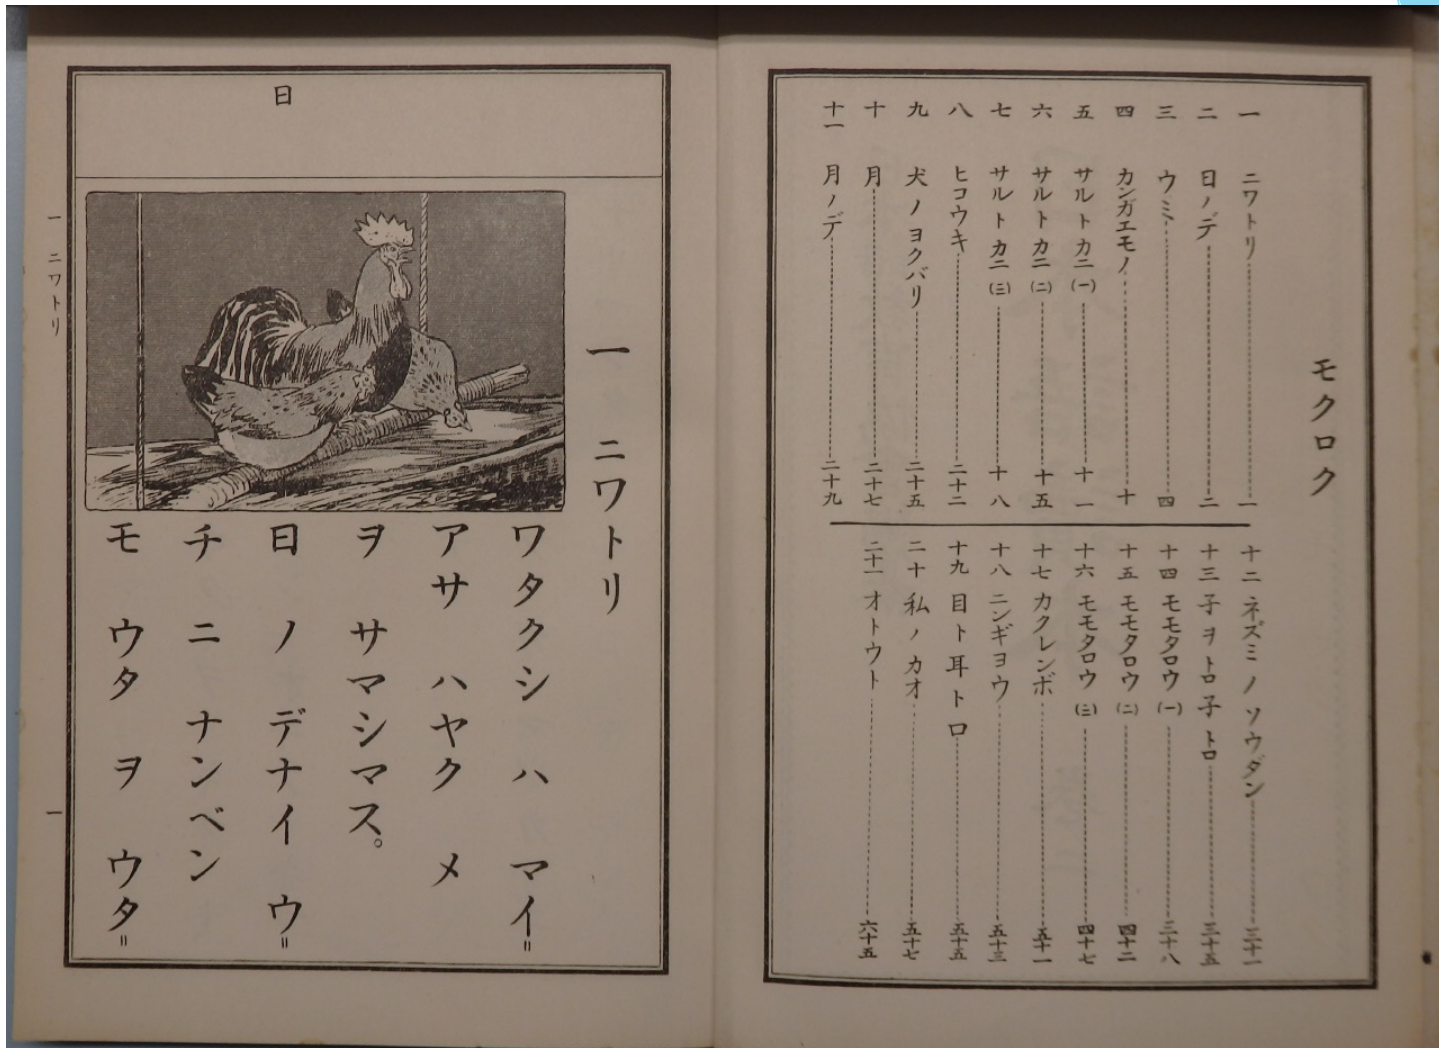 モクロク
一 ニワトリ 一
二 日ノデ 二
三 ウミ 四
四 カンガエモノ 十
五 サルトカニ(一) 十一
六 サルトカニ(二) 十五
七 サルトカニ(三) 十八
八 ヒコウキ 二十二
九 犬ノヨクバリ 二十五
十 月 二十七
十一 月ノデ 二十九
十二 ネズミノソウダン 三十一
十三 子ヲトロ子トロ 三十五
十四 モモタロウ(一) 三十八
十五 モモタロウ(二) 四十二
十六 モモタロウ(三) 四十七
十七 カクレンボ 五十一
十八 ニンギヨウ 五十三
十九 目ト耳ト口 五十五
二十 私ノカオ 五十七
二十一 オトウト 六十五
日
一 ニワトリ
ワタクシ ハ マイ=
アサ ハヤク メ
ヲ サマシマス。
日 ノ デナイ ウ=
チ ニ ナンベン
モ ウタ ヲ ウタ=
一 ニワトリ 一